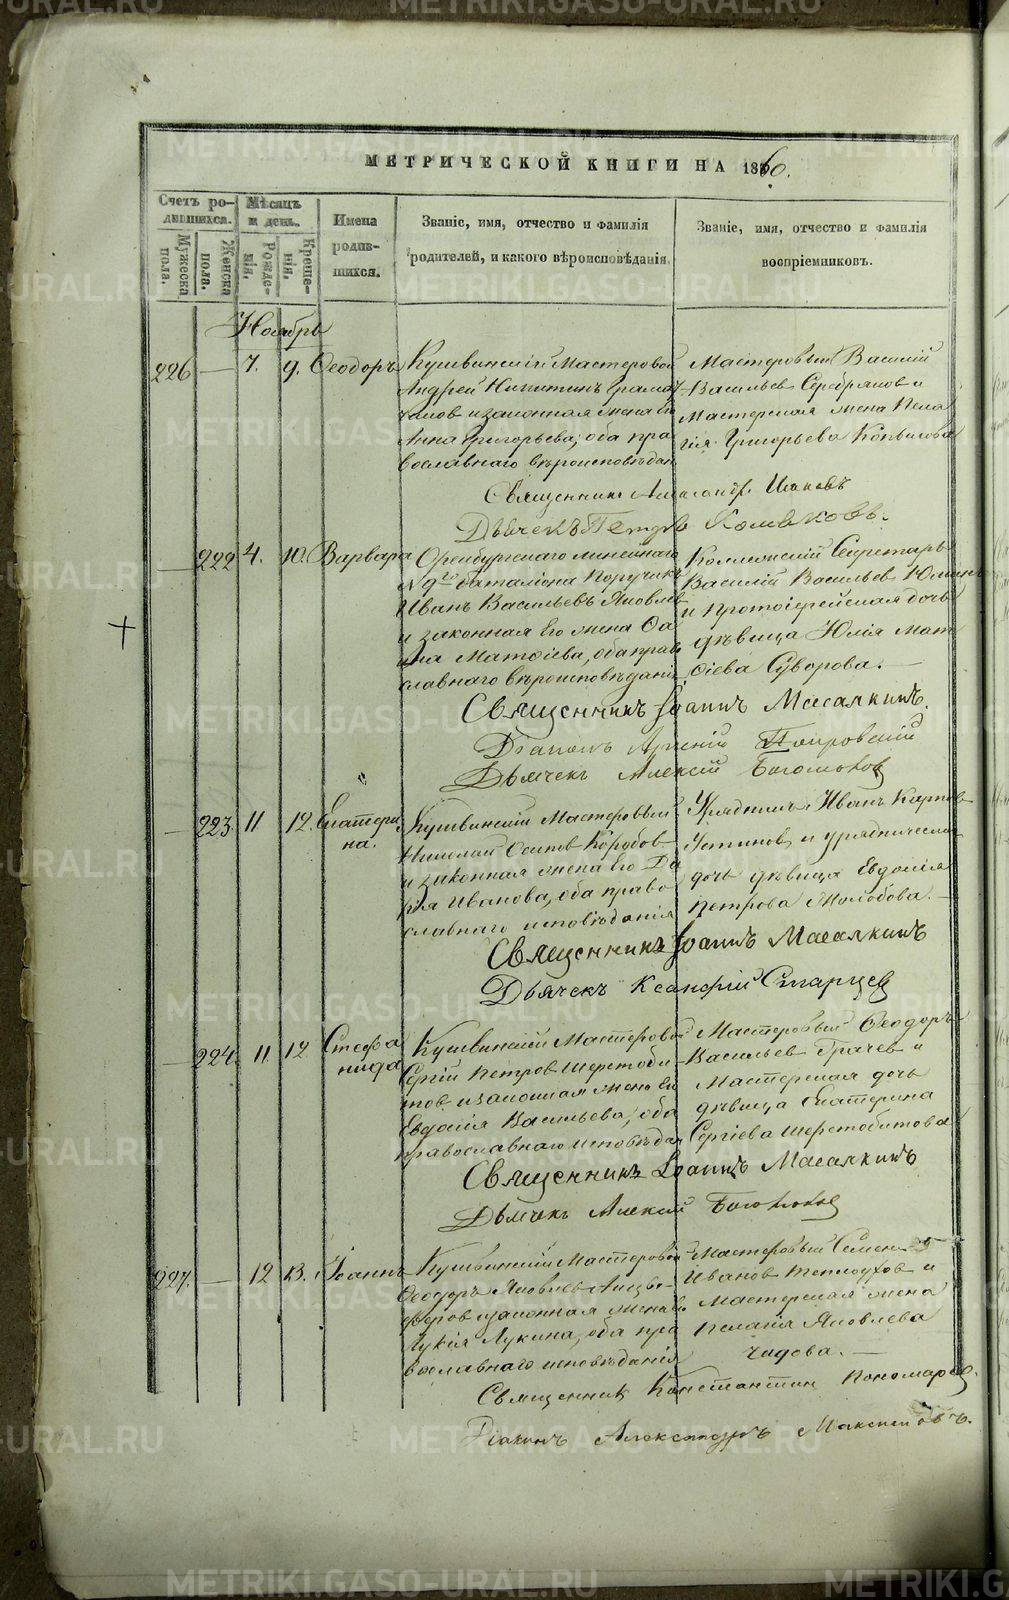 МЕТРИЧЕСКОЙ КНИГИ НА 1860.
Счетъ ро-
дившихся.
Мужеска
пола.
Женска
пола.
Мѣсяцъ
и день.
Рожде-
нія.
Креще-
нія.
Имена
родив-
шихся.
Званіе, имя, отчество и фамилія
родителей, и какого вѣроисповѣданія.
Званіе, имя, отчество и фамилія
воспріемниковъ.
Ноябрь
226 — 7. 9. Ѳеодоръ
Кушвинскій Мастеровой
Андрей Никитинъ
и законная жена его
Анна Григорьева, оба пра
вославнаго вѣроисповѣдан
Мастеровый Василій
Васильев Серебряков и
Мастерская жена Пела
гія Григорьева Копылова
Священникъ Александръ
Дьячекъ Петръ
— 222 4. 10. Варвара
Оренбургскаго линейнаго
№ 9го баталіона Поручикъ
Иванъ Васильевъ Яковлев
и законная Его жена
Матѳіева, оба право
славнаго вѣроисповѣданія
Коллежскій Секретарь
Василій Васильев
и Протоіерейская дочь
дѣвица Юлія Мат
ѳіева Суворова. —
Священникъ Іоаннъ Масалкинъ.
Діаконъ Арсеній Покровскій
Дьячекъ Алексій Богомолов
— 223 11 12. Екатери
на.
Кушвинскій Мастеровый
Николай Осипов Коробов
и законная жена Его Да
рія Иванова, оба право
славнаго исповѣданія
Урядникъ Иванъ Карпов
Устинов и урядническая
дочь дѣвица Евдокія
Петрова Молобова. —
Священникъ Іоаннъ Масалкинъ
Дьячекъ Ксанфій Старцев
— 224. 11 12 Стефа
нида
Кушвинскій Мастеровой
Сергій Петров Шерстоби
тов и законная жена Ея
Евдокія Васильева, оба
православнаго исповѣдан
Мастеровый Ѳеодоръ
Васильев Грачев и
Мастерская дочь
дѣвица Екатерина
Сергіева Шерстобитова
Священникъ Іоаннъ Масалкинъ
Дьячекъ Алексій Богомолов
227. — 12 13. Іоаннъ
Кушвинскій Мастеровой
Ѳеодоръ Яковлев
и законная жена его
Лукія Лукина, оба пра
вославнаго исповѣданія
Мастеровый Семен
Иванов Теплоухов и
Мастерская жена
Пелагія Яковлева
Чадова. —
Священник Константин Пономарев.
Діаконъ Александръ Максимовъ.
METRIKI.GASO-URAL.RU